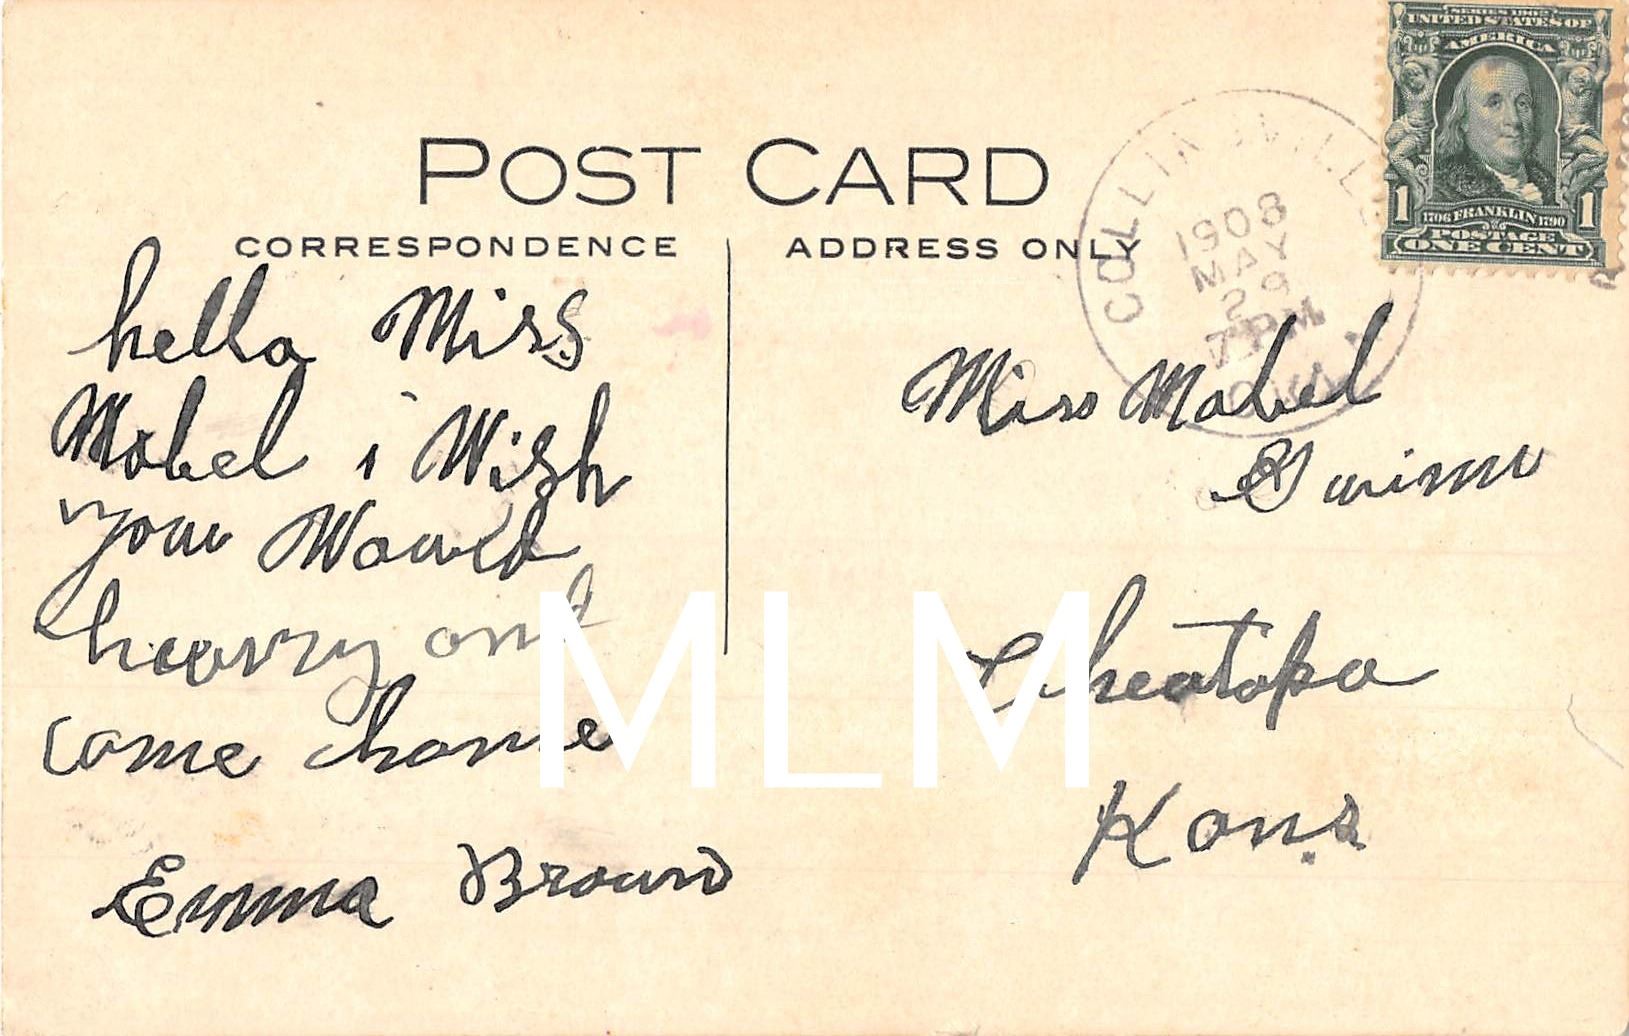 POST CARD
CORRESPONDENCE
ADDRESS ONLY
SERIES 1902
UNITED STATES OF
AMERICA
1706 FRANKLIN 1790
1 1
POSTAGE
ONE CENT
COLLINSVILLE
1908
MAY
29
7 PM
OKLA
hello Miss
Mabel i Wish
you Would
hurry and
come home
Emma Brown
Miss Mabel
Cheatopa
Kans.
MLM